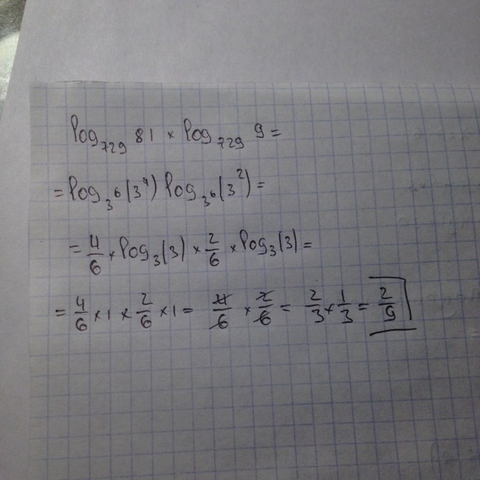 log₇₂₉ 81 × log₇₂₉ 9 =
= log₃⁶(3⁴) log₃⁶(3²) =
= 4/6 × log₃(3) × 2/6 × log₃(3) =
= 4/6 × 1 × 2/6 × 1 = 4/6 × 2/6 = 2/3 × 1/3 = 2/9